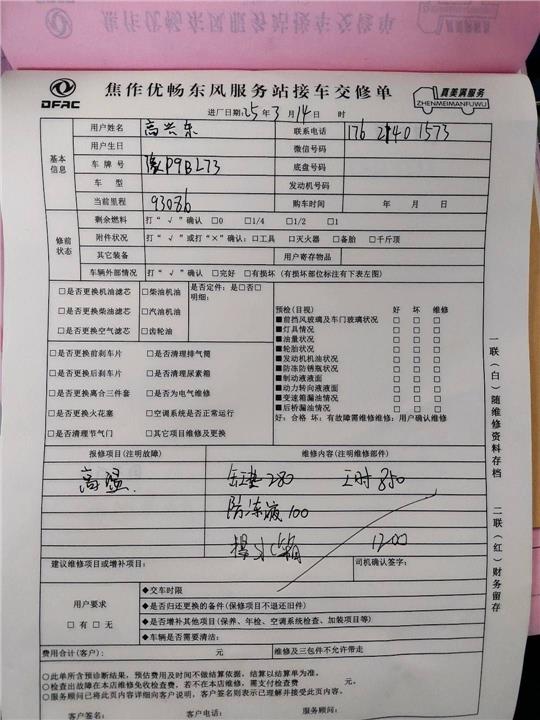 DFAC
焦作优畅东风服务站接车交修单
真美满服务
ZHENMEIMANFUWU
进厂日期: 25 年 3 月 14 日 时
基本信息
用户姓名 高兴东 联系电话 176 2140 1573
用户生日 微信号码
车牌号 豫P9BL73 底盘号码
车型 发动机号码
当前里程 93086 购车时间 年 月 日
修前状态
剩余燃料 打“√”确认 □0 □1/4 □1/2 □1
附件状况 打“√”或打“×”确认:□工具 □灭火器 □备胎 □千斤顶
其它装备 用户寄存物品
车辆外部情况 打“√”确认 □完好 □有损坏 (有损坏部位标注有下表左图)
□是否更换机油滤芯 □柴油机油 是否定件:是□否□
明细:
□是否更换柴油滤芯 □汽油机油
□是否更换空气滤芯 □齿轮油
预检(目视) 好 坏 维修
■前挡风玻璃及车门玻璃状况 □ □ □
■灯具情况 □ □ □
■油量状况 □ □ □
■轮胎状况 □ □ □
■发动机机油状况 □ □ □
■防冻防锈瓶状况 □ □ □
■制动液液面 □ □ □
■动力转向液液面 □ □ □
■变速箱漏油情况 □ □ □
■后桥漏油情况 □ □ □
好:合格 坏:有故障需维修维修:用户确认维修
□是否更换前刹车片 □是否清理排气筒
□是否更换后刹车片 □是否清理尿素箱
□是否更换离合三件套 □是否为电气维修
□是否更换火花塞 □空调系统是否正常运行
□是否清理节气门 □其它项目维修及更换
报修项目(注明故障) 维修内容(注明维修部件)
高温 缸垫 280 工时 850
防冻液 100
水箱 1200
建议维修项目或增补项目: 司机确认签字:
用户要求
□有 □无
◆交车时限
◆是否归还更换的备件(保修项目不退还旧件)
◆是否增补其他项目(保养、年检、空调系统检查、加装项目等)
◆车辆是否需要清洁:
费用合计(客户): 元 维修及三包件不允许带走
○此单所含预诊断结果,预估费用及时间不做结算依据,结算以结算单为准。
○检查出故障在本店维修免收检查费,若不在本店维修,需支付检查费 元。
○服务顾问已将此页内容详细向客户说明,客户签名则表示已理解并接受此页内容。
客户签名: 客户电话: 服务顾问:
一联(白)随维修资料存档
二联(红)财务留存